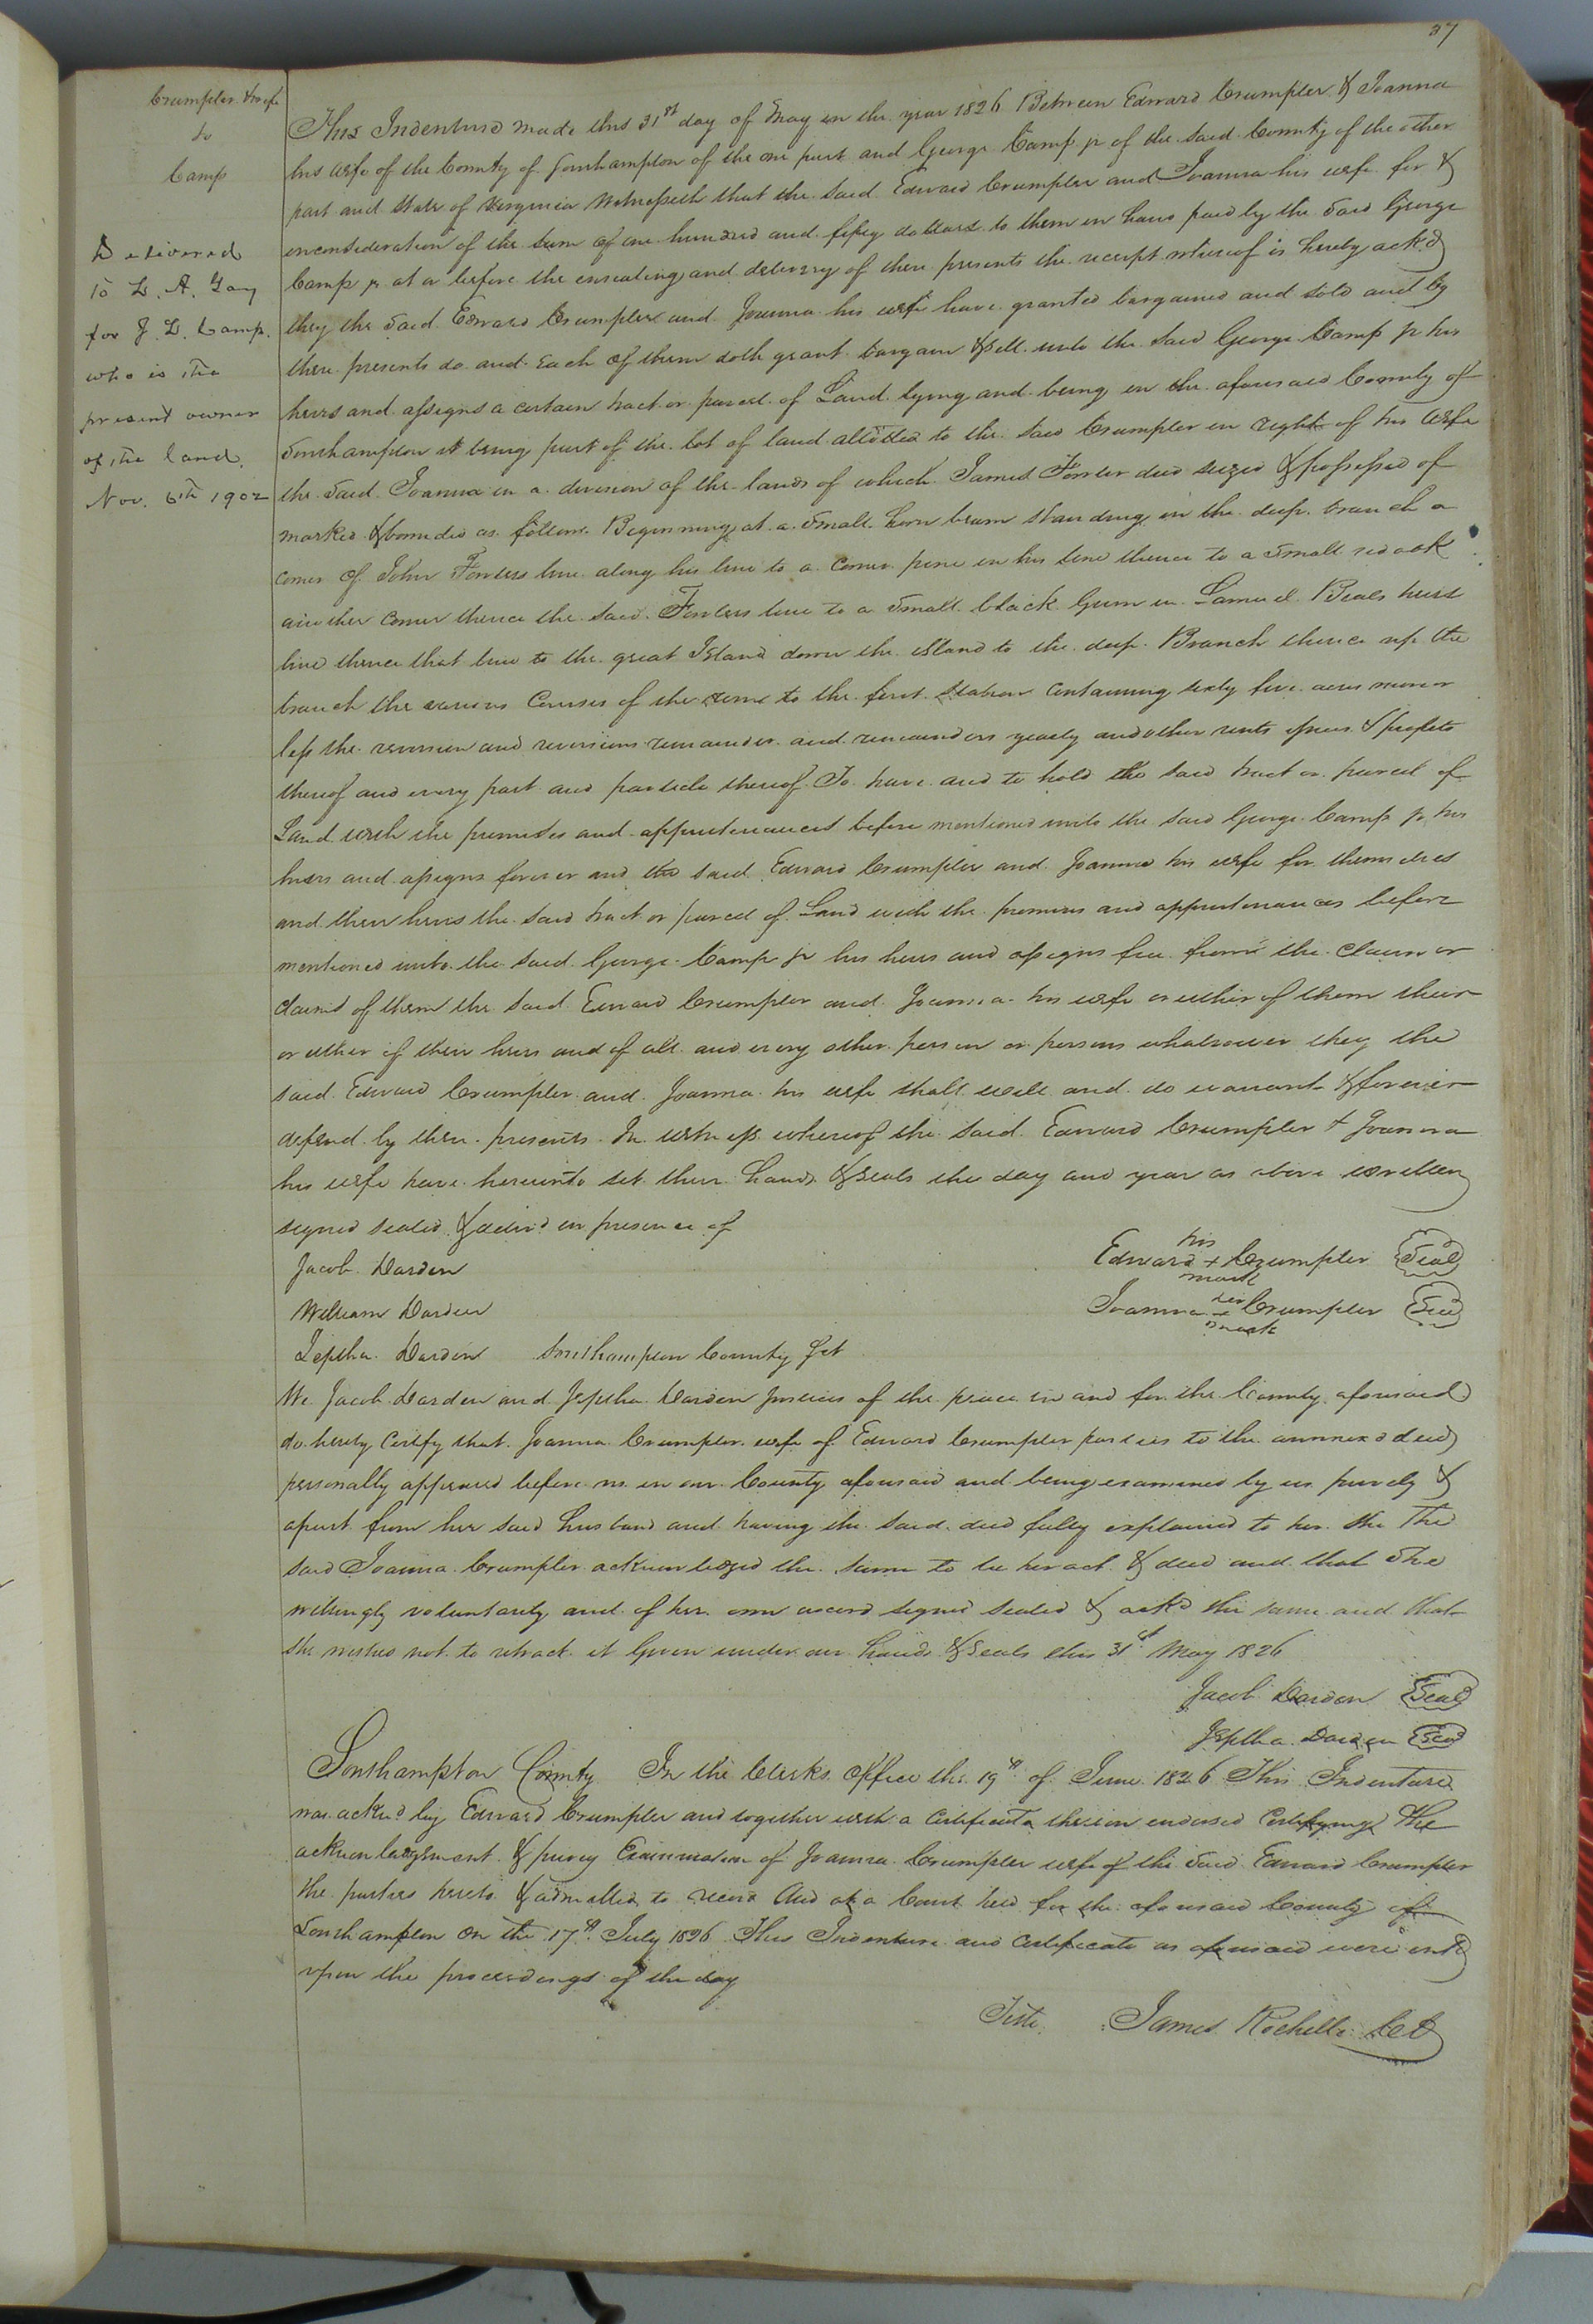 37
Crumpler & wife
to
Camp
Delivered
to L. A. Gay
for J. L. Camp.
who is the
present owner
of the land.
Nov. 6th 1902
This Indenture made this 31st day of May in the year 1826 Between Edward Crumpler & Joanna
his wife of the County of Southampton of the one part and George Camp jr of the said County of the other
part and State of Virginia Witnesseth that the said Edward Crumpler and Joanna his wife for &
inconsideration of the sum of one hundred and fifty dollars to them in hand paid by the said George
Camp jr at or before the ensealing and delivery of these presents the receipt whereof is hereby ackd
they the said Edward Crumpler and Joanna his wife have granted bargained and sold and by
these presents do and Each of them doth grant bargain & sell unto the said George Camp jr his
heirs and assigns a certain tract or parcel of Land lying and being in the aforesaid County of
Southampton it being part of the lot of land allotted to the said Crumpler in right of his Wife
the said Joanna in a division of the lands of which James Fowler died seized & possessed of
marked & bounded as follows Beginning at a small horn beam standing in the deep branch a
corner of John Fowlers line along his line to a corner pine in his line thence to a small red oak
another corner thence the said Fowlers line to a small black Gum in Samuel Beals heirs
line thence that line to the great Island down the island to the deep Branch thence up the
branch the various Courses of the same to the first station Containing sixty five acres more or
less the reversion and reversions remainder and remainders yearly and other rents issues & profits
thereof and every part and particle thereof To have and to hold the said tract or parcel of
Land with the premises and appurtenances before mentioned unto the said George Camp jr his
heirs and assigns forever and the said Edward Crumpler and Joanna his wife for themselves
and their heirs the said tract or parcel of Land with the premises and appurtenances before
mentioned unto the said George Camp jr his heirs and assigns free from the Claim or
claims of them the said Edward Crumpler and Joanna his wife or either of them their
or either of their heirs and of all and every other person or persons whatsoever they the
said Edward Crumpler and Joanna his wife shall will and do warrant & forever
defend by these presents In witness whereof the said Edward Crumpler & Joanna
his wife have hereunto set their hands & seals the day and year as above written
signed sealed & delivd in presence of
Jacob Darden
William Darden
Jeptha Darden
his
Edward + Crumpler Seal
mark
her
Joanna + Crumpler Seal
mark
Southampton County Sct
We Jacob Darden and Jeptha Darden Justices of the peace in and for the County aforesaid
do hereby Certify that Joanna Crumpler wife of Edward Crumpler parties to the annexed deed
personally appeared before us in our County aforesaid and being examined by us privily &
apart from her said husband and having the said deed fully explained to her she the
said Joanna Crumpler acknowledged the same to be her act & deed and that she
willingly voluntarily and of her own accord signed sealed & ackd the same and that
she wishes not to retract it Given under our hands & seals this 31st May 1826
Jacob Darden Seal
Jeptha Darden Seal
Southampton County In the Clerks Office the 19th of June 1826 This Indenture
was acknd by Edward Crumpler and together with a Certificate thereon endorsed Certifying the
acknowledgement & privy Examination of Joanna Crumpler wife of the said Edward Crumpler
the parties hereto & admitted to record And at a Court held for the aforesaid County of
Southampton on the 17th July 1826 This Indenture and Certificate as aforesaid were entd
upon the proceedings of the day
Teste. James Rochelle CC